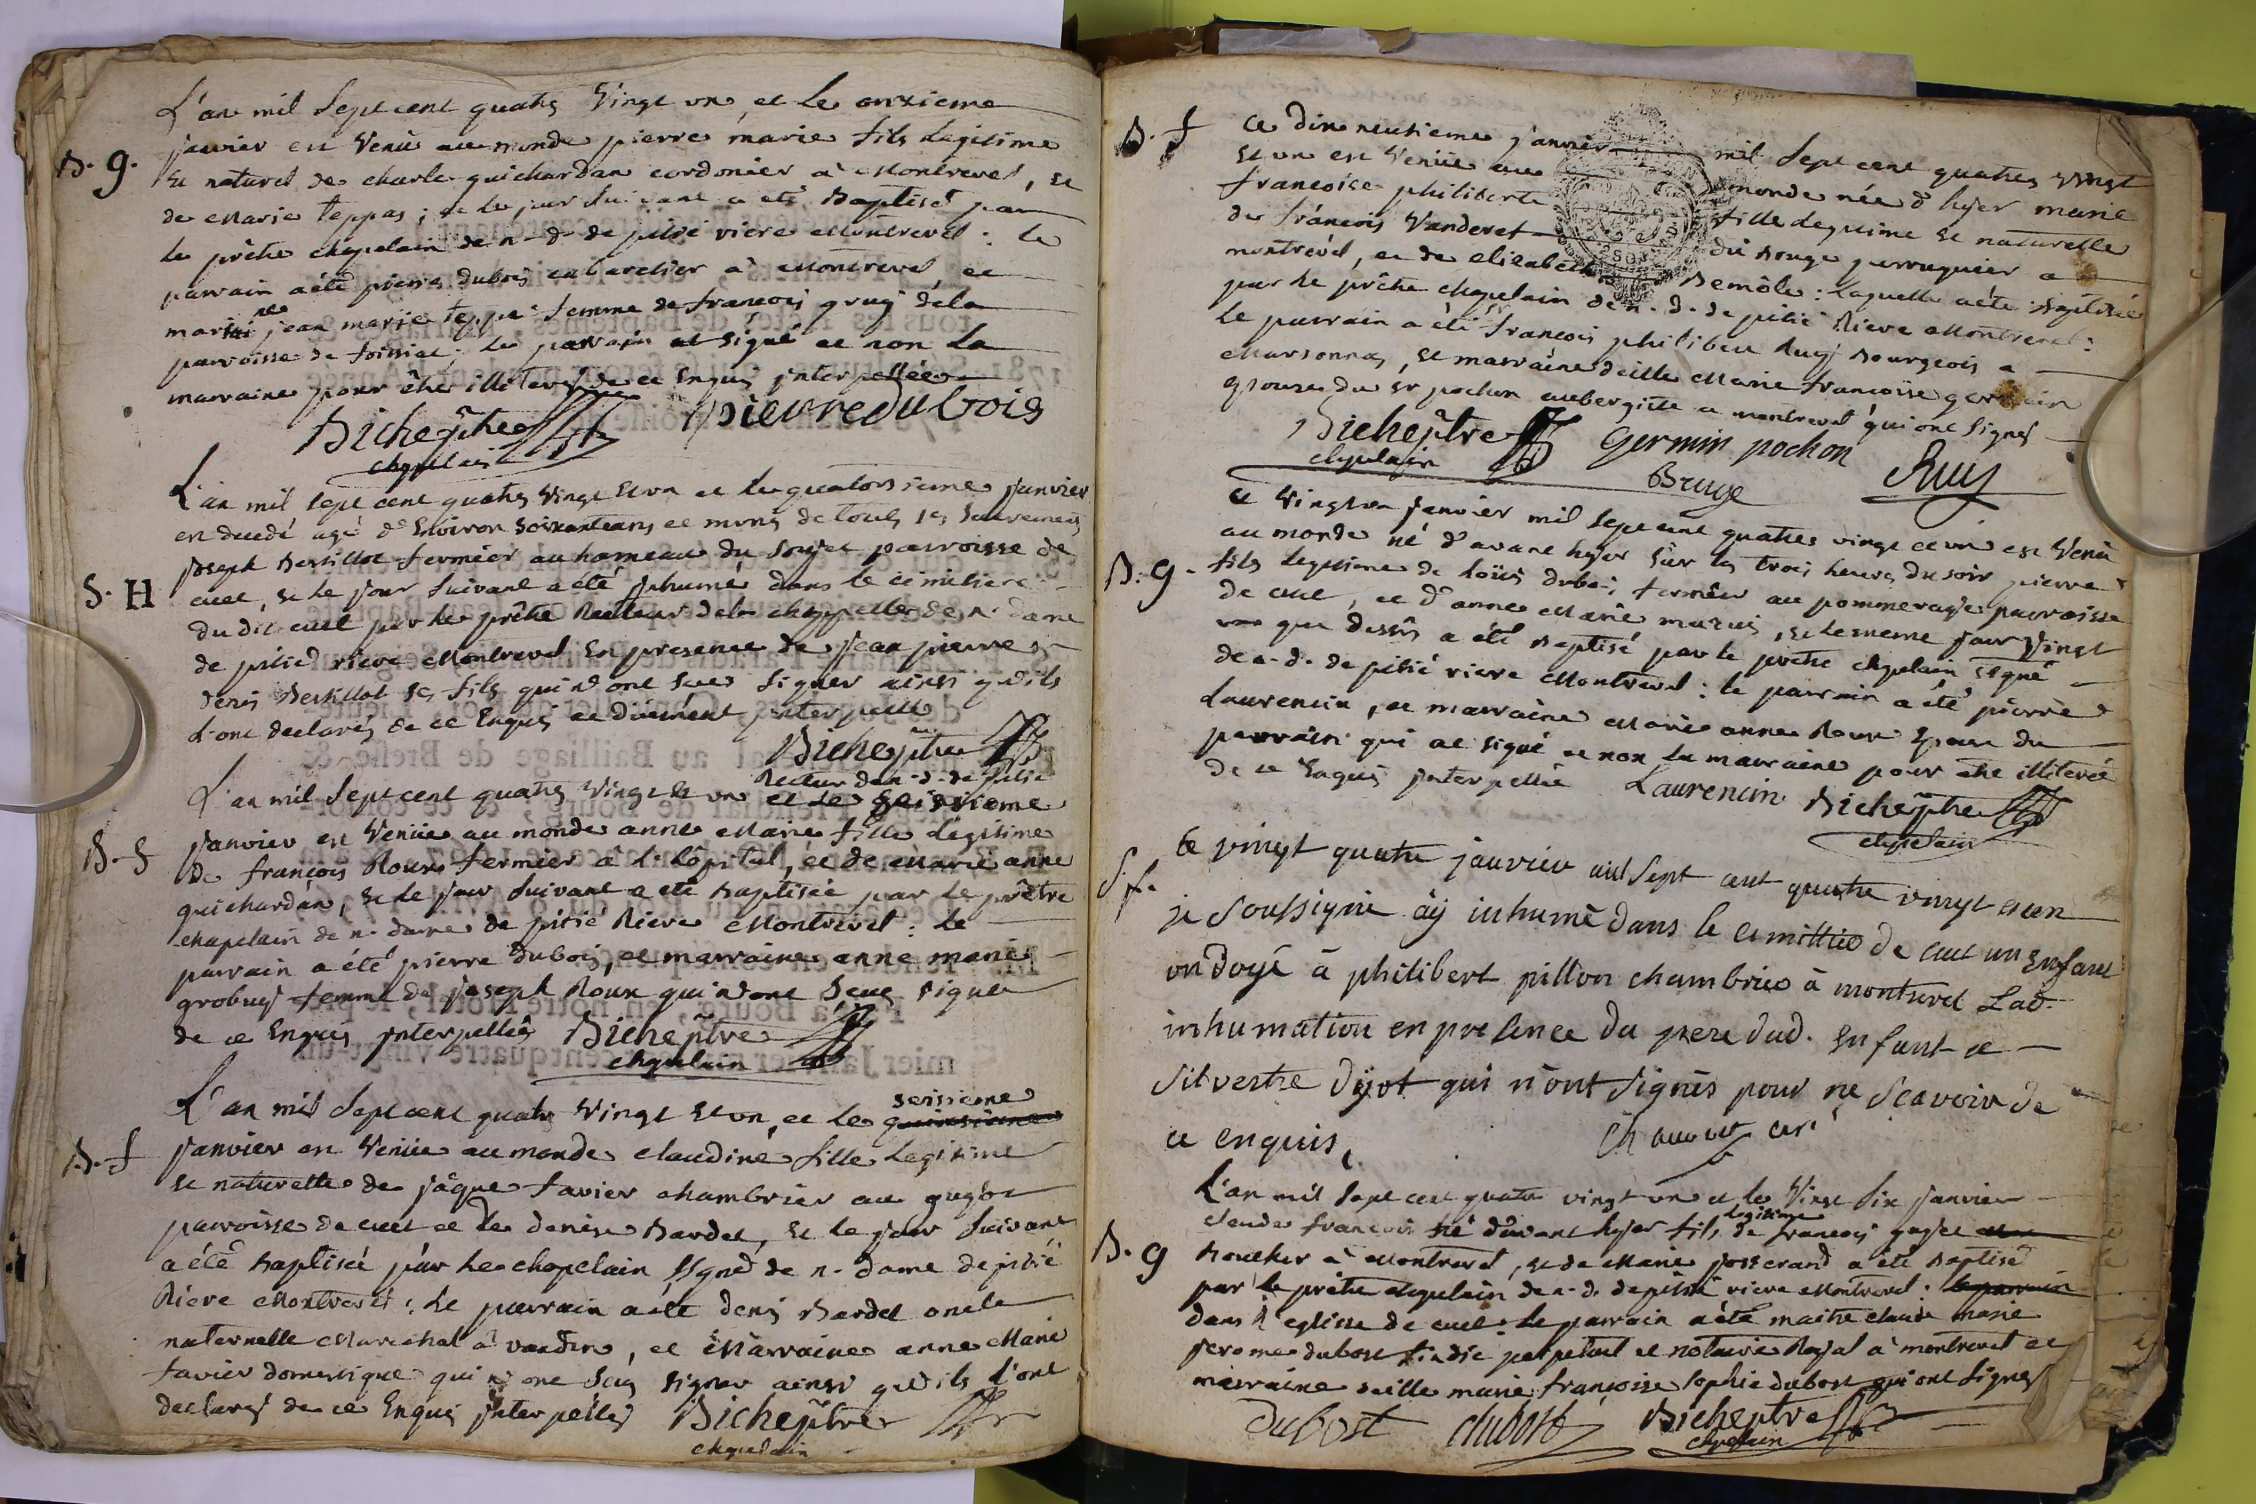 L'an mil sept cent quatre vingt un, et le onzieme
B. g.
janvier est venu au monde pierre marie fils legitime
et naturel de charle guichardan cordonier à Montrevel, et
de Marie teppas ; et le jour suivant a eté Baptisé par
le prêtre chapelain de n. d. de pitié riere Montrevel : le
parrain a été pierre dubois cabaretier à Montrevel et
marraine jean marie teppe femme de françois gruy de la
parroisse de foissiat ; le parrain at signé et non la
marraine pour être illiteréé de ce Enquis jnterpellée
Biche ptre
chapelain
pierre du bois
L'an mil sept cent quatre vingt et un et le quatorsieme janvier
est decedé agé d'Environ soixante ans et munis de touts les sacrements
joseph Bertillot fermier au hameau du parroisse de
S. H
cuet, et le jour suivant a eté jnhumé dans le cimitiere
du dit cuet par le prêtre Recteur de la chappelle de n. dame
de pitié riere Montrevel En presence de jean pierre et
denis Bertillot ses fils qui n'ont sceu signer ainsi qu'ils
l'ont declarés de ce Enquis et duement jnterpellé
Biche ptre
Recteur de n. d. de pitié
L'an mil sept cent quatre vingt et un et le seisieme
B. f
janvier est venüe au monde anne Marie fille légitime
de françois Roux fermier à l'hôpital, et de Marie anne
guichardan, et le jour suivant a eté baptisée par le prêtre
chapelain de n. dame de pitié Riere Montrevel : le
parrain a été pierre dubois, et marraine anne marie
grobuy femme de joseph Roux qui n'ont sceus signer
de ce Enquis jnterpellés
Biche ptre
chapelain
L'an mil sept cent quatre vingt et un, et le seisieme
B. f
janvier est venüe au monde claudine fille legitime
et naturelle de jâque favier chambrier au
parroisse de cuet et de denise Bardet, et le jour suivant
a été baptisée par le chapelain ssigné de n. dame de pitié
Riere Montrevel : le parrain a été denis Bardet oncle
maternelle Marechal à vandin, et Marraine anne Marie
favier domestique qui n'ont sceus signer ainsi qu'ils l'ont
declarés de ce Enquis jnterpellés
Biche ptre
chapelain
B. f
ce dix neufieme janvier mil sept cent quatre vingt
et un est venüe au monde née d'hyer marie
francoise philiberte fille legitime et naturelle
de françois Vanderet dit Rouge perruquier a
montrevel, et de elisabeth Bemôle : laquelle a été baptisée
par le prêtre chapelain de n. d. de pitié Riere Montrevel :
le parrain a été sr francois philibert Ruy Bourgeois a
Marsonnas, et marraine delle Marie francoise germain
epouse du sr pochon aubergiste a montrevel qui ont signés
Biche ptre
chapelain
germin pochon
Bruge
Ruy
ce vingt un janvier mil sept cent quatre vingt et un est venu
au monde né d'avant hyer sur les trois heures du soir pierre
B. g.
fils legitime de loüis dubois fermier au pommeraye parroisse
de cuet, et d'anne Marie mazuis, et le meme jour vingt
un que dessus a été baptisé par le prêtre chapelain ssigné
de n. d. de pitié riere Montrevel : le parrain a été pierre
Laurencin, et marraine Marie anne Roux Epouse du
parrain qui at signé et non la marraine pour etre illiterée
de ce Enquis jnterpellée
Laurencin
Biche ptre
chapelain
S. f.
ce vingt quatre janvier mil sept cent quatre vingt et un
je soussigné aÿ inhumé dans le cimitiere de cuet un enfant
ondoyé à philibert pillon chambrier à montrevel Lad.
inhumation en presence du pere dud. enfant et
silvestre dyot qui n'ont signés pour ne scavoir de
ce enquis,
curé
L'an mil sept cent quatre vingt un et le vingt six janvier
claude francois né d'avant hyer fils legitime de francois
B. g
boucher à Montrevel, et de Marie josserand a été baptisé
par le prêtre chapelain de n. d. de pitié riere Montrevel : le parrain
dans l'eglisse de cuet : le parrain a été maitre claude marie
jerome dubost sindic perpetuel et notaire Royal à montrevel et
marraine delle marie françoise sophie dubost qui ont signés
Dubost
dubost
Biche ptre
chapelain